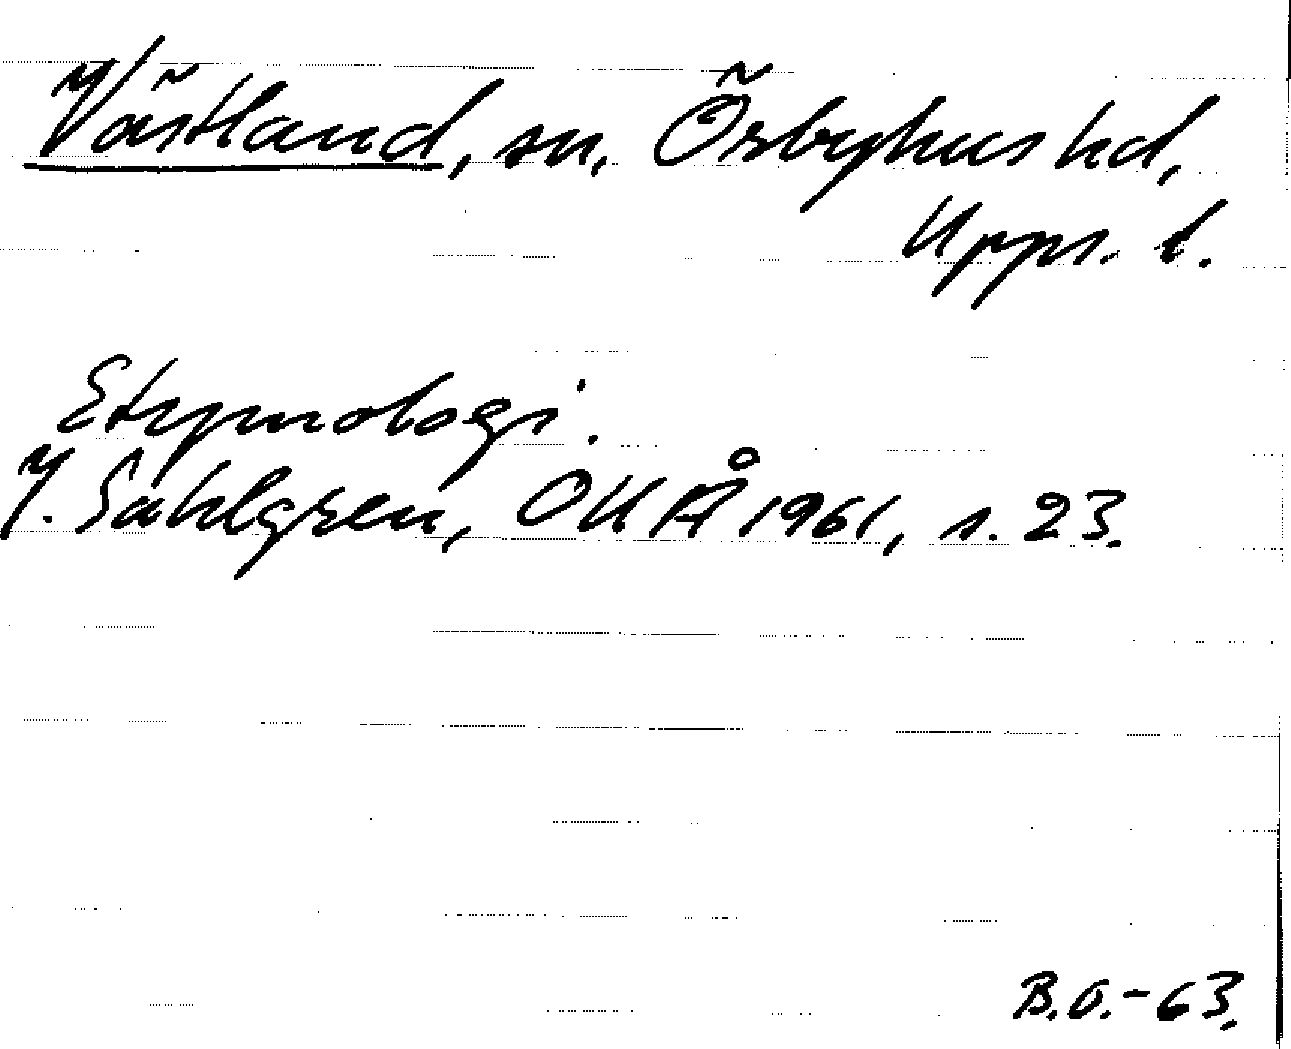 Västland, sn, Örbyhus hd,
Upps. l.
Etymologi.
J. Sahlgren, OUÅ 1961, s. 23.
B.O.-63.